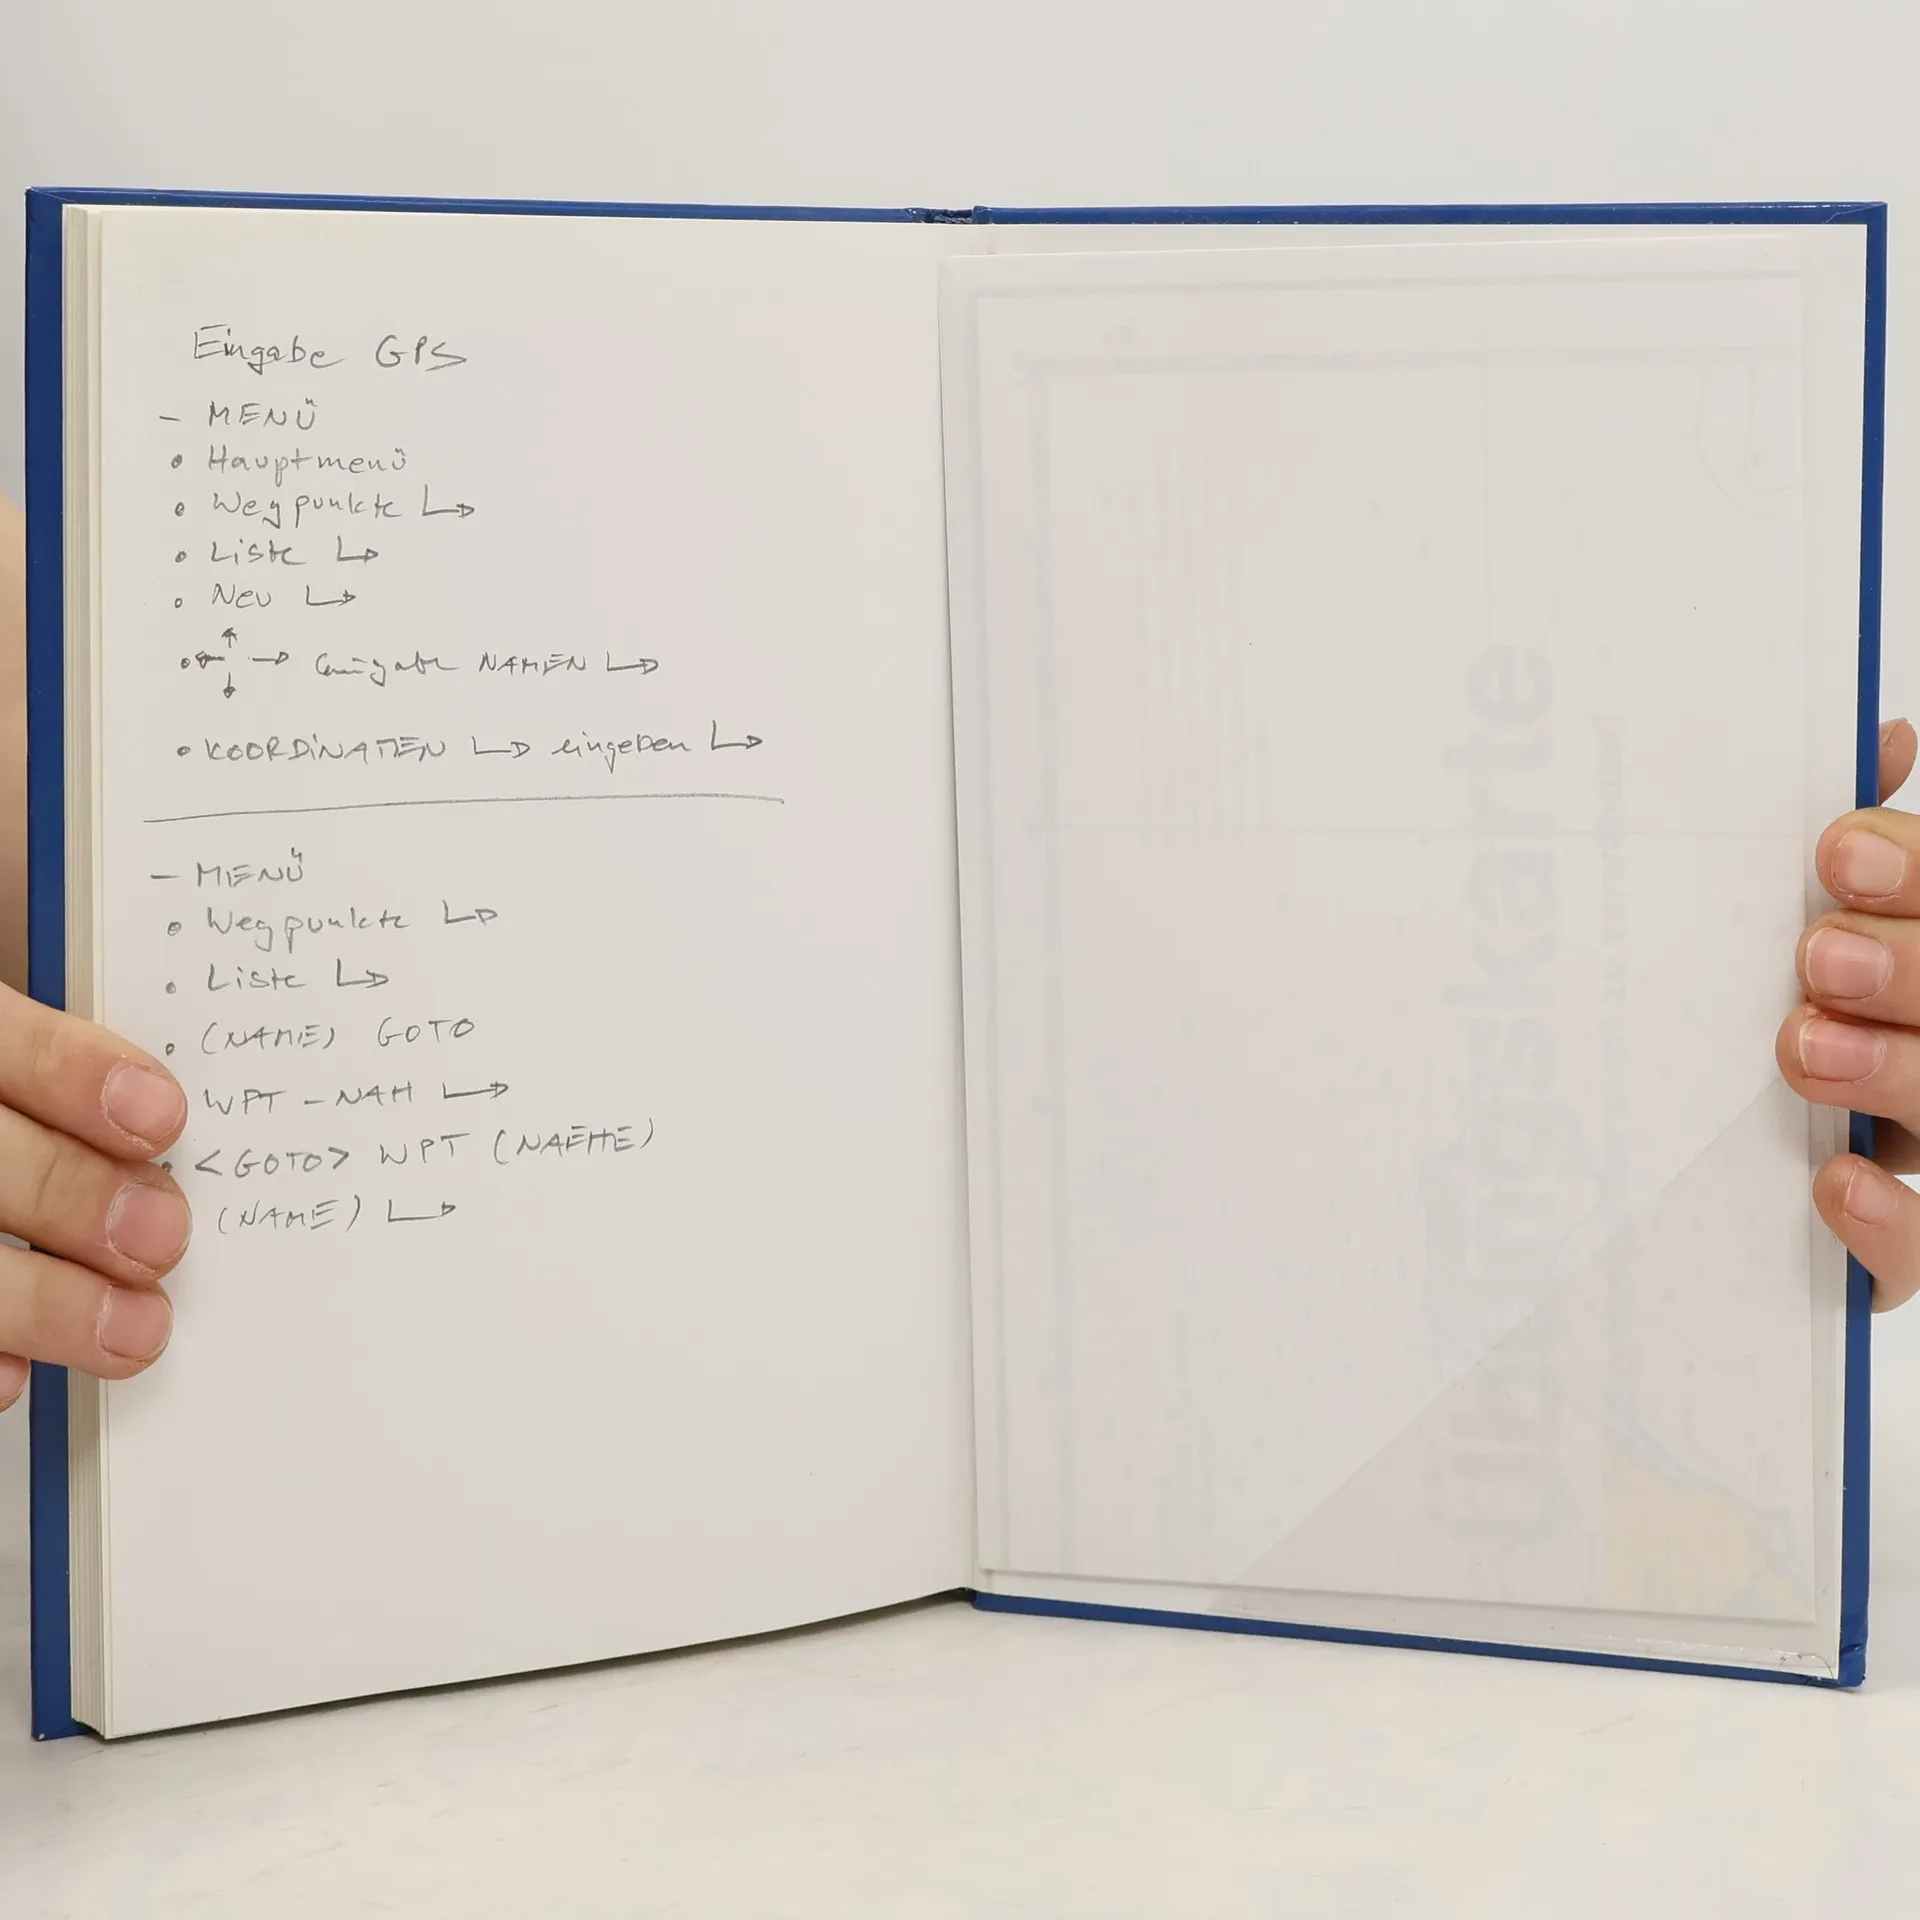 Eingabe GPS
- MENÜ
• Hauptmenü
• Wegpunkte ↳
• Liste ↳
• Neu ↳
• ← ↑ ↓ → Eingabe NAMEN ↳
• KOORDINATEN ↳ eingeben ↳
- MENÜ
• Wegpunkte ↳
• Liste ↳
• (NAME) GOTO
WPT - NAH ↳
• <GOTO> WPT (NAEHE)
(NAME) ↳
Übungskarte